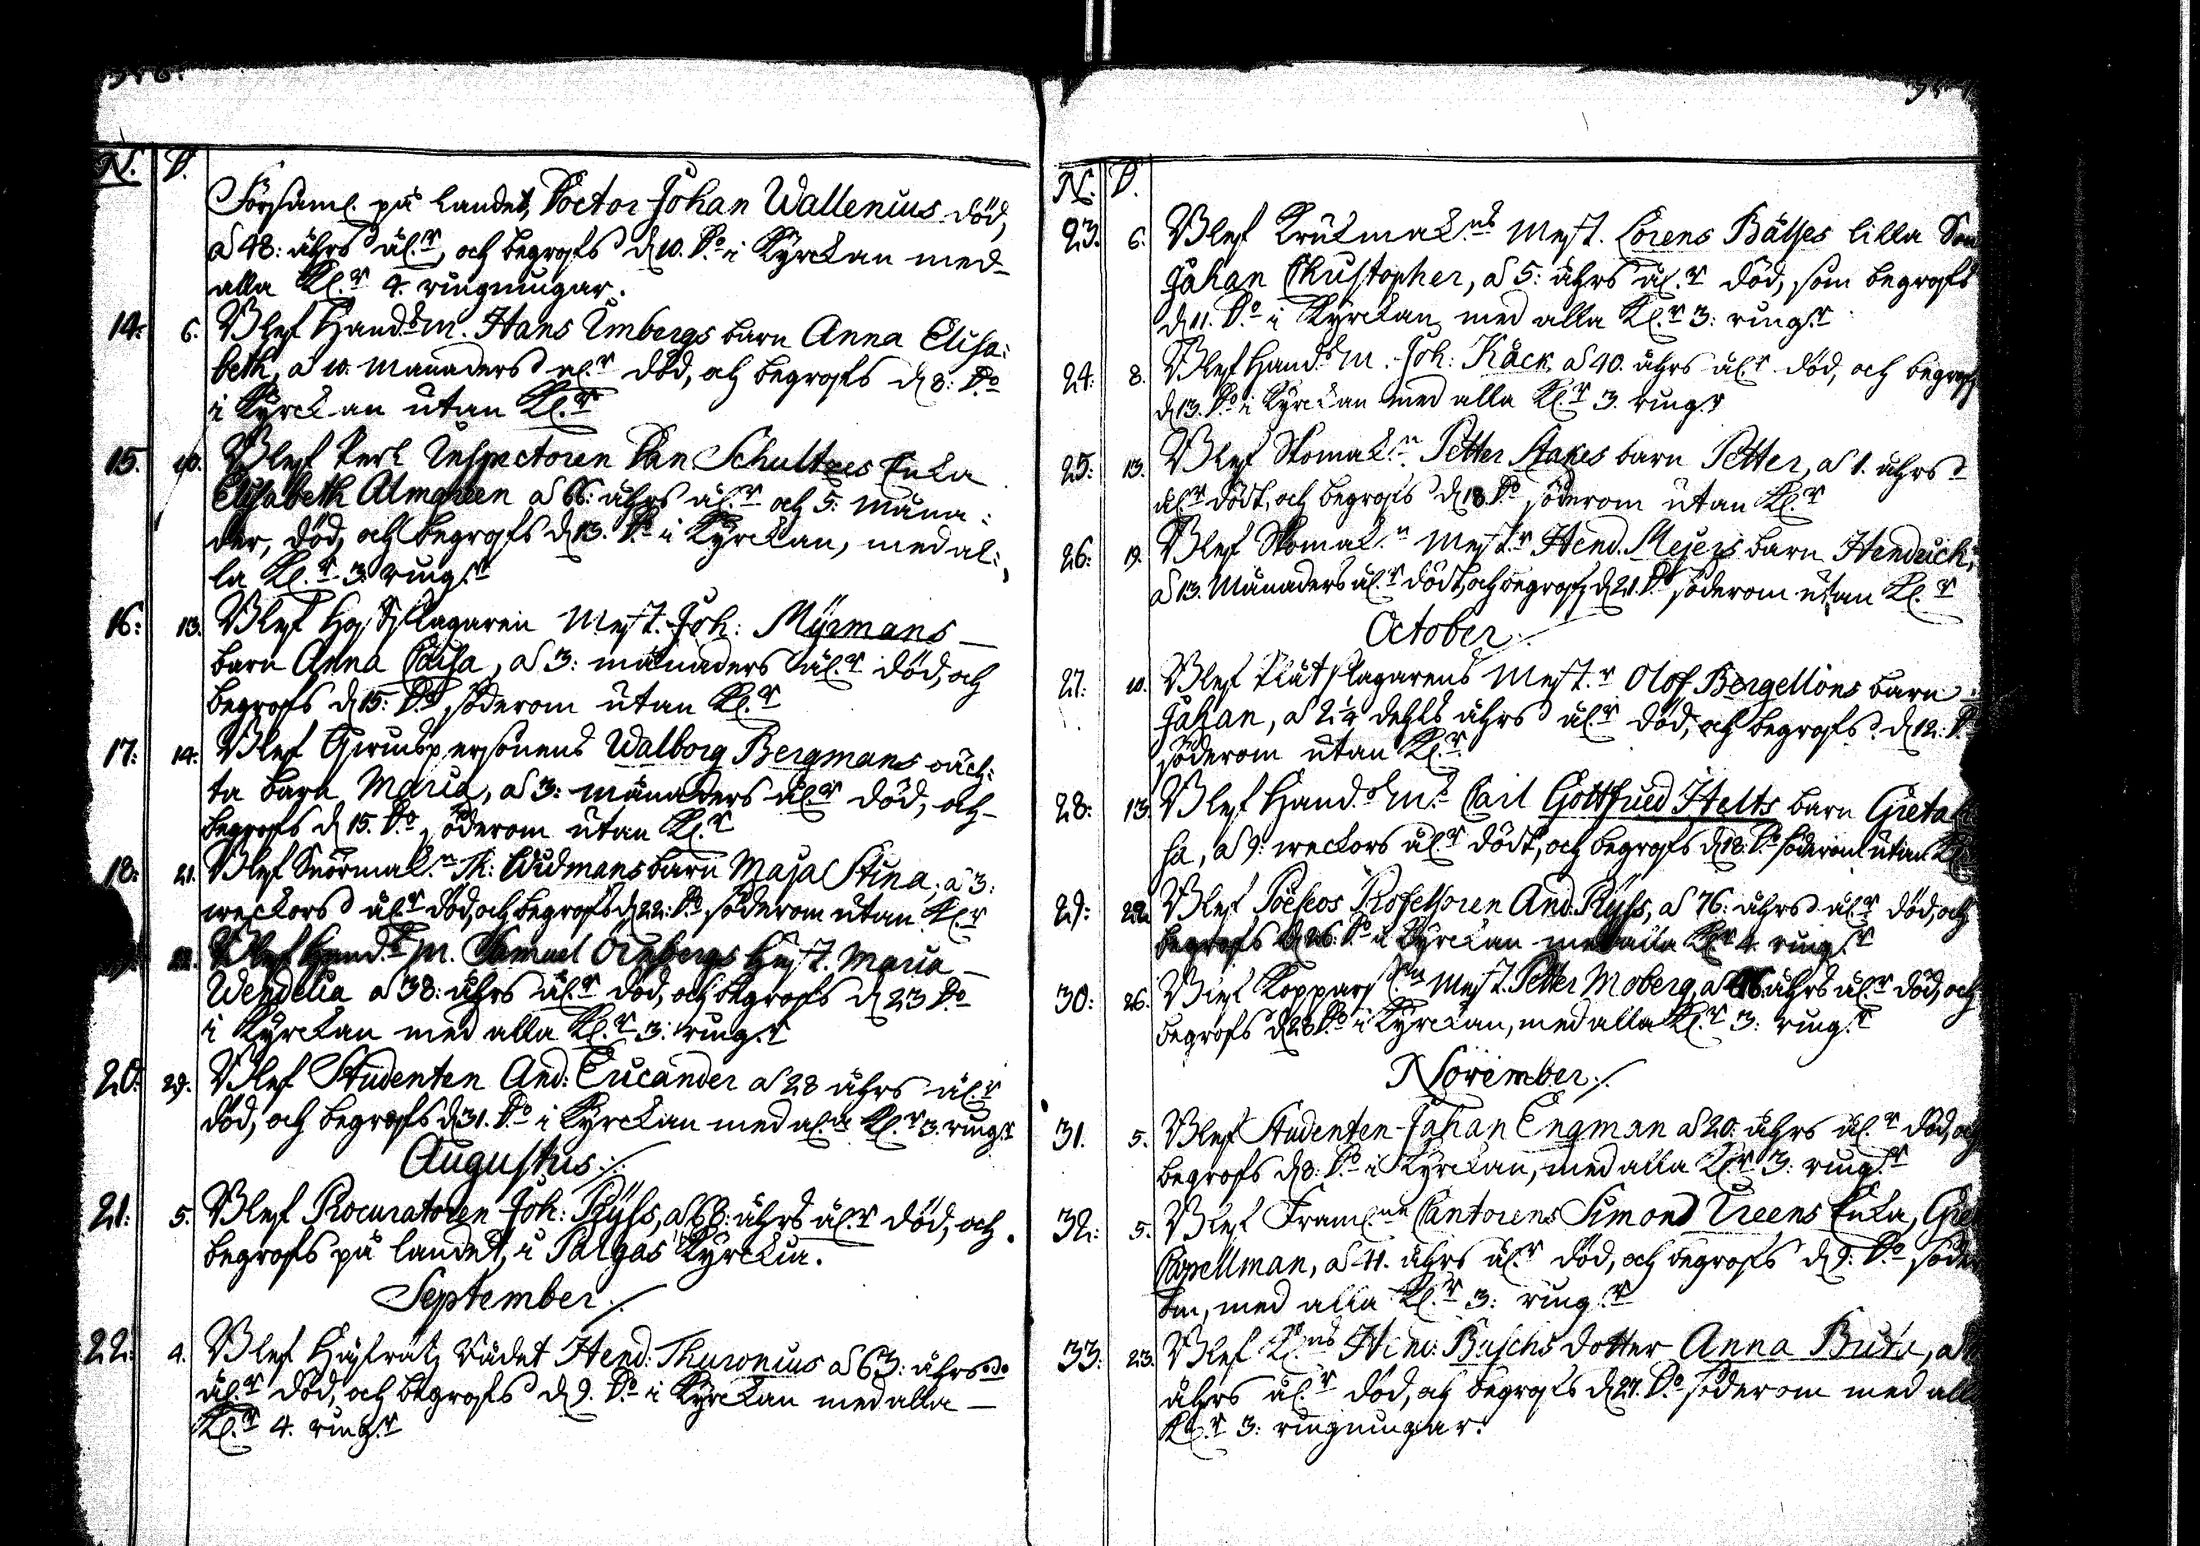 N. D.
Församl. på landet, Doctor Johan Wallenius död,
a 48: åhrs ål.r, och begrofs d 10. D.o i Kÿrckan med
alla Kl.r 4. ringningar.
14: 6. Blef Hand.m. Hans Umbergs barn Anna Elisa:
beth, a 10. Månaders ål.r död, och begrofs d 8: D.o
i Kÿrckan utan Kl.r
15. 10. Blef Inspectoren Schultzes Enka
Elisabeth Almgreen a 66: åhrs ål.r och 5: Måna:
der, död, och begrofs d 13. D.o i Kÿrckan, med al:
la Kl.r 3: ring.r
16: 13. Blef Hofslagaren Mest. Joh: Mÿrmans
barn Anna Caisa, a 3: månaders ål.r död, och
begrofs d 15: D.o söderom utan Kl.r
17: 14. Blef Qvinspersonens Walborg Bergmans oäch:
ta barn Maria, a 3: månaders ål.r död, och
begrofs d 15. D.o söderom utan Kl.r
18: 21. Blef Snörmak.n Th: Widmans barn Maja Stina, a 3:
weckors ål.r död, och begrofs d 22: D.o söderom utan Kl.r
22. Blef Hand.m. Samuel Örnbergs Hust. Maria
Wendelia a 38: åhrs ål.r död, och begrofs d 23 D.o
i Kÿrckan med alla Kl.r 3: ring.r
20: 29. Blef Studenten And: Eucander a 28 åhrs ål.r
död, och begrofs d 31. D.o i Kÿrckan med al.a Kl.r 3. ring.r
Augustus
21: 5. Blef Procuratoren Joh: Rÿss, a 68: åhrs ål.r död, och
begrofs på landet, i Pargas Kÿrckia.
September
22: 4. Blef Håfrätz Rådet Hend: Thuronius a 63: åhrs
ål.r död, och begrofs d 9. D.o i Kÿrckan med alla
Kl.r 4. ring.r
N. D.
23. 6. Blef Krukmak.ns Mest. Lorens Bätjes lilla Son
Johan Christopher, a 5: åhrs ål.r död, som begrofs
d 11. D.o i Kÿrckan med alla Kl.r 3: ring.r
24: 8. Blef Hand.m. Joh: Käck, a 40. åhrs ål.r död, och begrofs
d 13. D.o i Kÿrckan med alla Kl.r 3. ring.r
25: 13. Blef Skomak.n Petter Stakes barn Petter, a 1. åhrs
ål.r dödt, och begrofs d 18 D.o söderom utan Kl.r
26: 19. Blef Skomak.n Mest.r Hend. Meijers barn Hendrick,
a 13. Månaders ål.r dödt, och begrofs d 21. D.o söderom utan Kl.r
October
27: 10. Blef Plåtslagarens Mest.r Olof Bergellöns barn
Johan, a 2 1/4 dehls åhrs ål.r död, och begrofs d 12: D.o
söderom utan Kl.r
28: 13. Blef Hand.m. Carl Gottfried Helts barn Greta
sa, a 9: weckors ål.r dödt, och begrofs d 18: D.o söderom utan Kl.r
29: 22. Blef Poëseos Professoren And. Rÿss, a 76: åhrs ål.r död, och
begrofs d 26. D.o i Kÿrckan med alla Kl.r 4. ring.r
30: 26. Blef Kopparsl.n Mest. Petter Moberg, a åhrs ål.r död, och
begrofs d 28 D.o i Kÿrckan, med alla Kl.r 3: ring.r
November
31. 5. Blef Studenten Johan Engman a 20: åhrs ål.r död, och
begrofs d 8: D.o i Kÿrckan, med alla Kl.r 3: ring.r
32: 5. Blef Fram. Cantorens Simond Ureens Enka,
Capellman, a 41. åhrs ål.r död, och begrofs d 9: D.o söder
om, med alla Kl.r 3: ring.r
33: 23. Blef Buschs dotter Anna Brita, a
åhrs ål.r död, och begrofs d 27. D.o söderom med alla
Kl.r 3: ringningar.